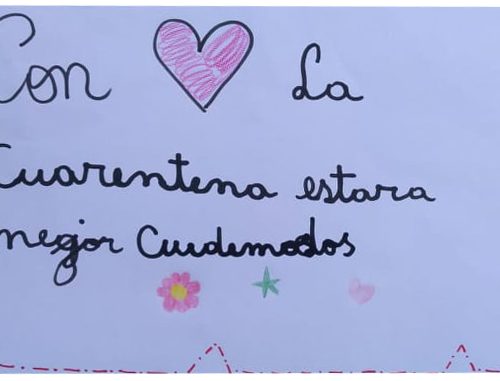 Con La
Cuarentena estara
megor Cuidemodos